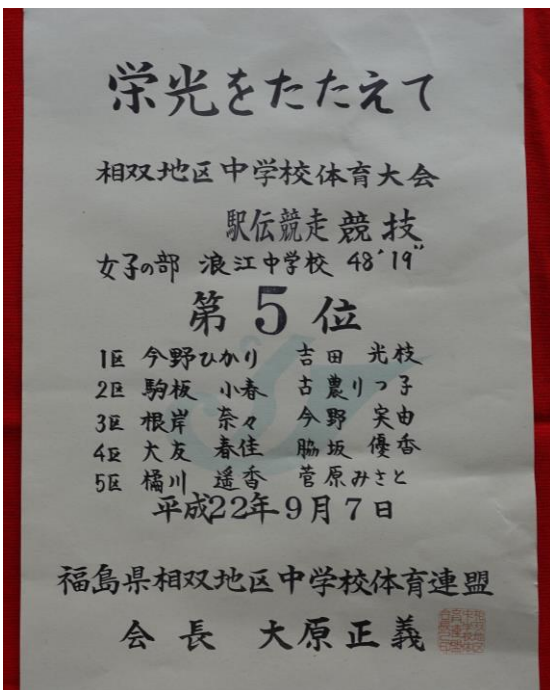 栄光をたたえて
相双地区中学校体育大会
駅伝競走 競技
女子の部 浪江中学校 48′19″
第5位
1区 今野ひかり 吉田 光枝
2区 駒板 小春 古農りつ子
3区 根岸 奈々 今野 実由
4区 大友 春佳 脇坂 優香
5区 橘川 遥香 菅原みさと
平成22年9月7日
福島県相双地区中学校体育連盟
会長 大原正義